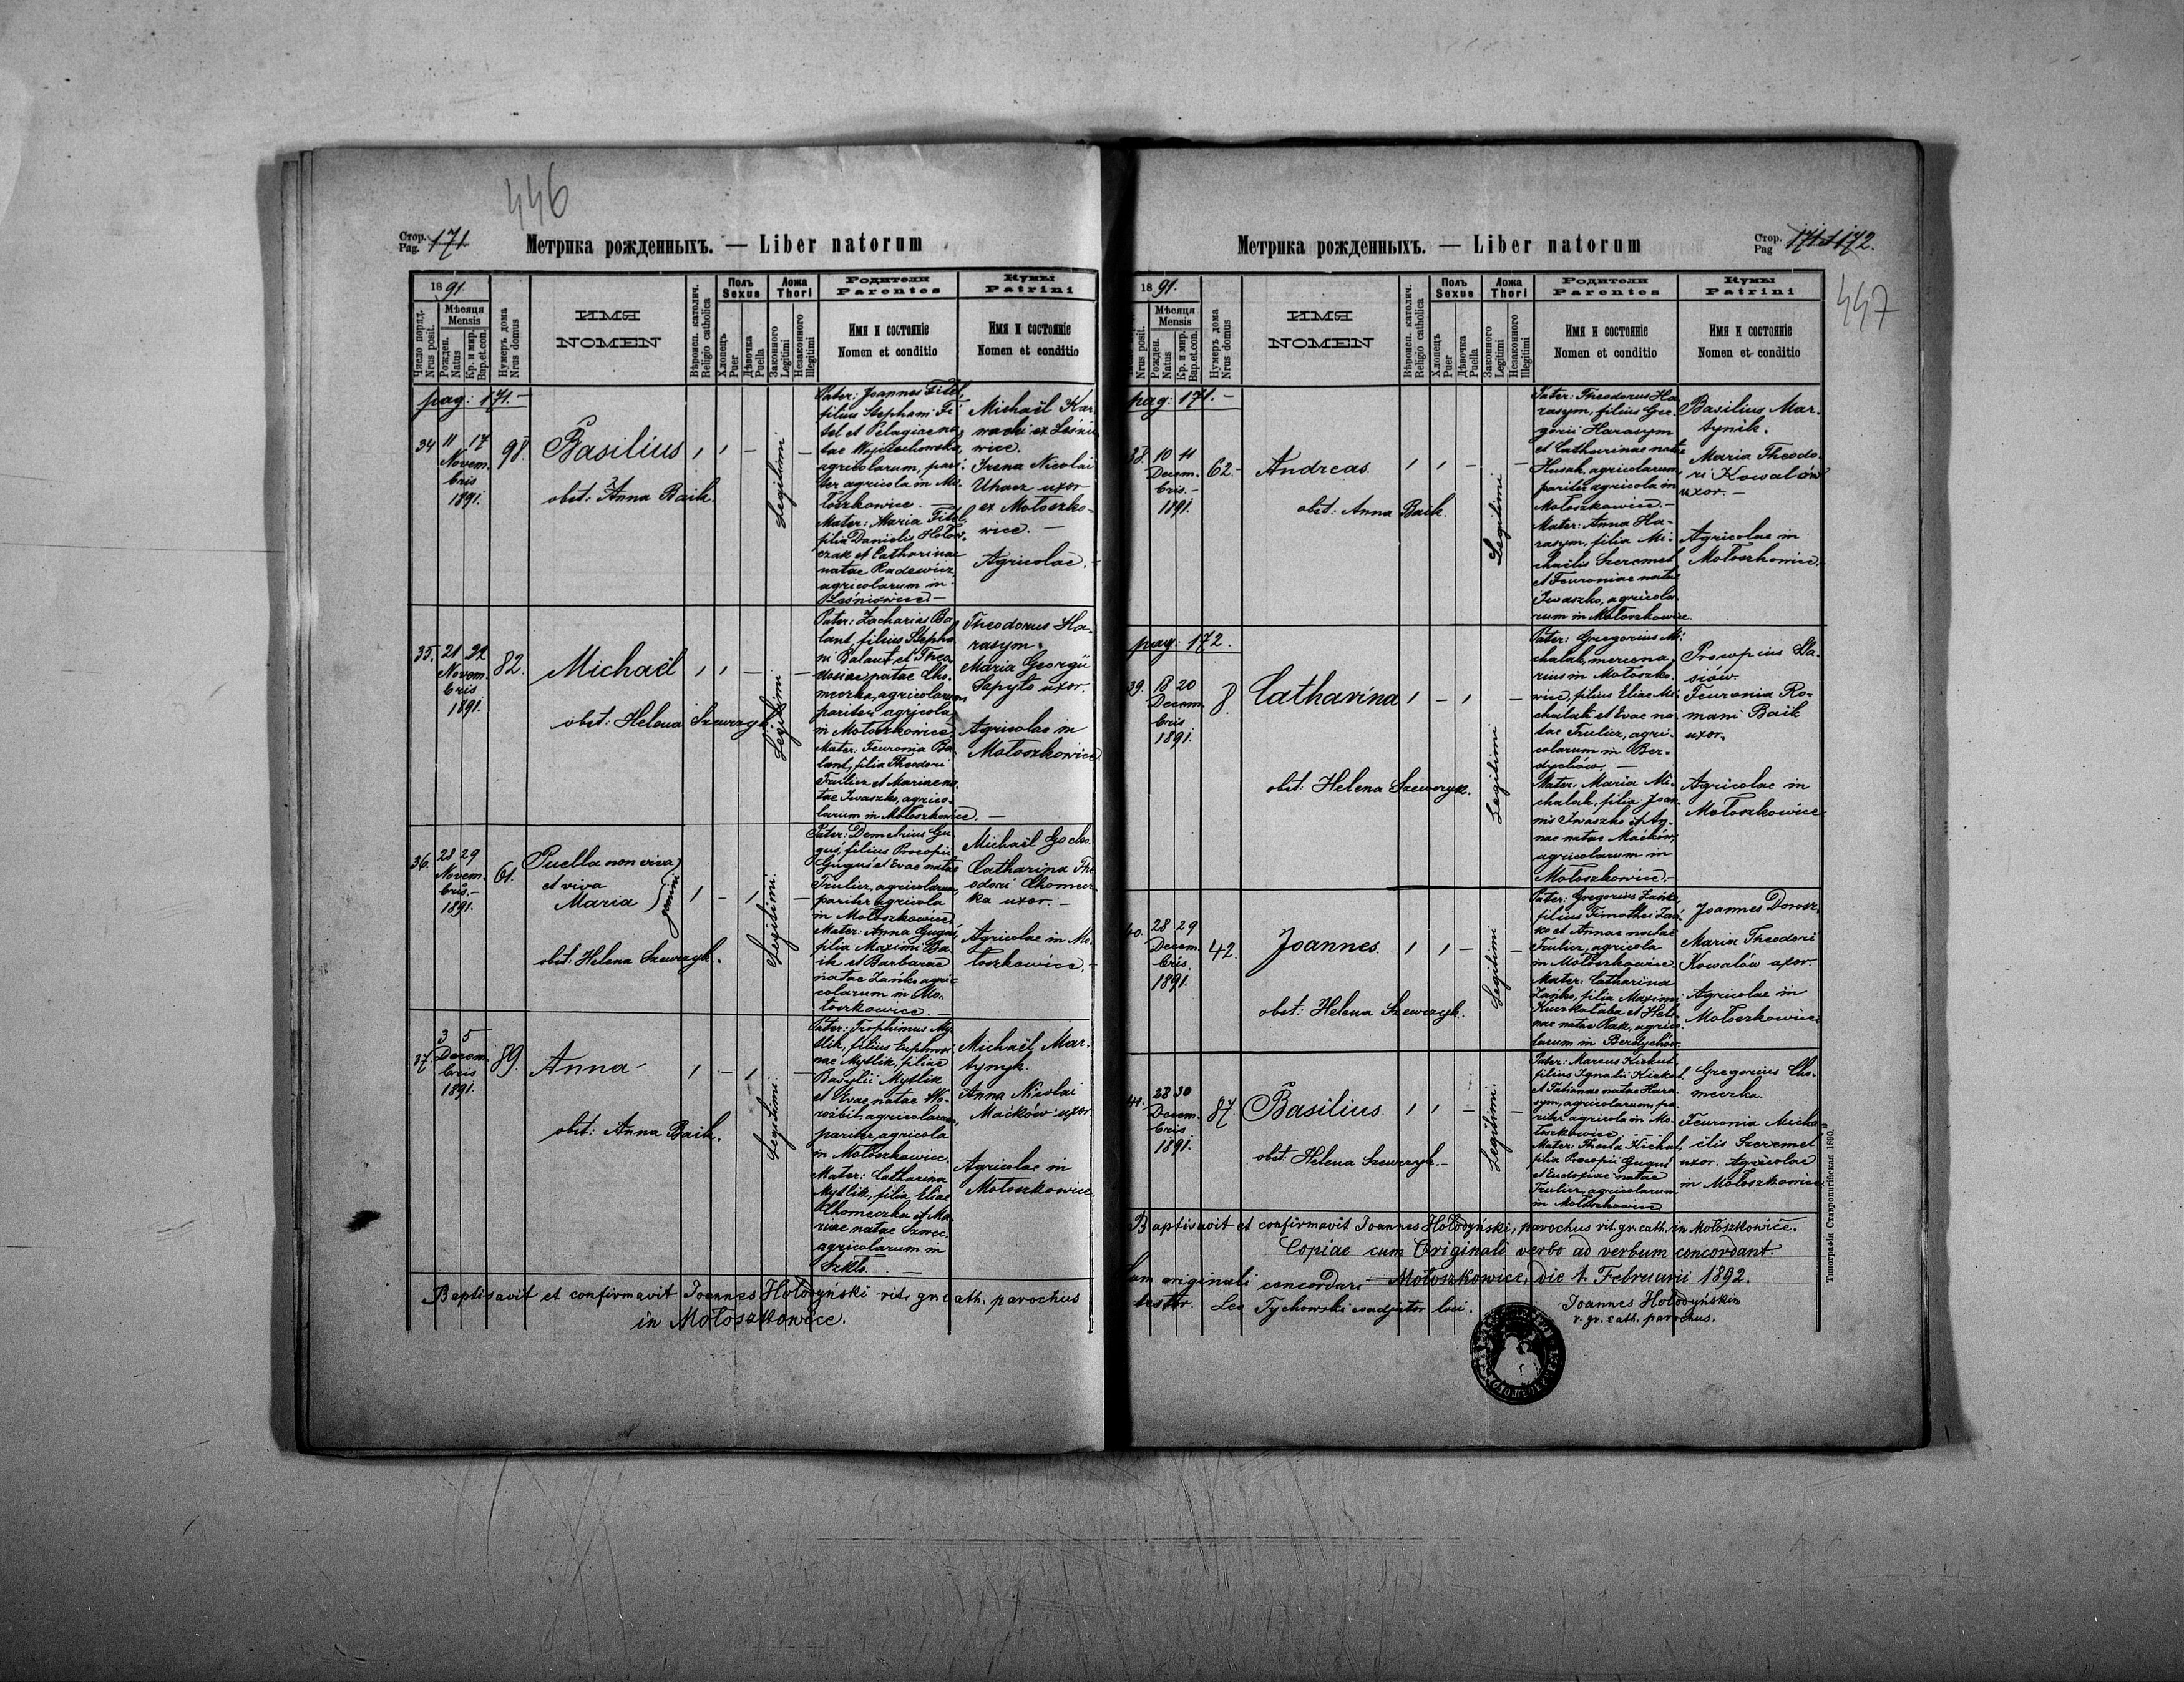 446
Стор. Pag. 171
Метрика рожденныхъ. — Liber natorum
1891.
Число поряд. Nrus posit.
Мѣсяця Mensis
Рожден. Natus
Кр. и мир. Bap. et. con.
Нумеръ дома Nrus domus
ИМЯ
NOMEN
Вѣроисп. католич. Religio catholica
Полъ Sexus
Хлопець Puer
Дѣвочка Puella
Ложа Thori
Законного Legitimi
Незаконного Illegitimi
Родители Parentes
Имя и состояніе
Nomen et conditio
Кумы Patrini
Имя и состояніе
Nomen et conditio
pag: 171. —
34 11 17 Novembris 1891. 98.
Basilius
obst: Anna Baik.
Legitimi
Pater: Joannes Fitel,
filius Stephani Fi
tel et Pelagiae na
tae Wojciechowska,
agricolarum, pari
ter agricola in Mo
łoszkowice. —
Mater: Maria Fitel,
filia Danielis Hołow
czak et Catharinae
natae Radewicz
agricolarum in
Leśniowice. —
Michaël Kar
wacki ex Leśnio
wice.
Irena Nicolai
Uhacz uxor
ex Mołoszko-
wice. —
Agricolae. —
35. 21 22 Novembris 1891. 82.
Michaël
obst: Helena Szewczyk.
Legitimi
Pater: Zacharias Ba
lant, filius Stepha
ni Balant et Theo
dosiae natae Cho
meczka, agricolarum,
pariter agricola
in Mołoszkowice.
Mater: Feuronia Ba
lant, filia Theodori
Frulicz et Mariae na
tae Iwaszko, agrico-
larum in Mołoszkowice. —
Theodorus Ha-
rasym.
Maria Georgii
Sapyło uxor.
Agricolae in
Mołoszkowice.
36. 28 29 Novembris. — 1891. 61.
Puella non viva
et viva
Maria
gemini
obst: Helena Szewczyk.
Legitimi.
Pater: Demetrius Gu
guś, filius Procopii
Guguś et Evae natae
Frulicz, agricolarum,
pariter agricola
in Mołoszkowice.
Mater: Anna Guguś,
filia Maximi Ba
ik et Barbarae
natae Zańko agri-
colarum in Mo-
łoszkowice. —
Michaël Gocko.
Catharina The
odori Chomecz
ka uxor. —
Agricolae in Mo-
łoszkowice. —
37. 3 5 Decembris 1891. 89.
Anna
obst: Anna Baik.
Legitimi.
Pater: Trophimus My
tlik, filius Euphrosi
nae Mytlik, filiae
Basylii Mytlik
et Evae natae Wo-
rozbit agricolarum,
pariter agricola
in Mołoszkowice.
Mater: Catharina
Mytlik, filia Eliae
Chomeczka et Ma-
riae natae Szwec,
agricolarum in
Szkło. —
Michaël Mar-
tynyk.
Anna Nicolai
Maćków uxor.
Agricolae in
Mołoszkowice.
Baptisavit et confirmavit Joannes Hołodyński rit. gr. cath. parochus
in Mołoszkowice.
Метрика рожденныхъ. — Liber natorum
Стор. Pag 171 et 172.
447
1891.
Мѣсяця Mensis
Рожден. Natus
Кр. и мир. Bap. et. con.
Нумеръ дома Nrus domus
ИМЯ
NOMEN
Вѣроисп. католич. Religio catholica
Полъ Sexus
Хлопець Puer
Дѣвочка Puella
Ложа Thori
Законного Legitimi
Незаконного Illegitimi
Родители Parentes
Имя и состояніе
Nomen et conditio
Кумы Patrini
Имя и состояніе
Nomen et conditio
pag: 171. —
38. 10 11 Decembris. — 1891. 62.
Andreas.
obst: Anna Baik.
Legitimi
Pater: Theodorus Ha
rasym, filius Gre-
gorii Harasym
et Catharinae natae
Husak, agricolarum,
pariter agricola in
Mołoszkowice. —
Mater: Anna Ha-
rasym, filia Mi-
chaëlis Szeremet
et Feuroniae natae
Iwaszko, agricola-
rum in Mołoszkowice.
Basilius Mar-
tynik.
Maria Theodo-
ri Kowalów
uxor. —
Agricolae in
Mołoszkowice.
pag: 172.
39. 18 20 Decembris 1891. 8.
Catharina
obst: Helena Szewczyk.
Legitimi
Pater: Gregorius Mi-
chalak, mercena-
rius in Mołoszko-
wice, filius Eliae Mi-
chalak et Evae na-
tae Frulicz, agri-
colarum in Ber-
dychów. —
Mater: Maria Mi-
chalak, filia Joan-
nis Iwaszko et Ag-
nae natae Maćków,
agricolarum in
Mołoszkowice. —
Procopius Da-
siów.
Feuronia Ro-
mani Baik
uxor.
Agricolae in
Mołoszkowice
40. 28 29 Decembris. 1891. 42.
Joannes.
obst: Helena Szewczyk.
Legitimi
Pater: Gregorius Zańko,
filius Timothei Zań-
ko et Annae natae
Frulicz, agricola
in Mołoszkowice.
Mater: Catharina
Zańko, filia Maximi
Kuczkałaba et Hele-
nae natae Rak, agrico-
larum in Berdychów.
Joannes Dorosz.
Maria Theodori
Kowalów uxor.
Agricolae in
Mołoszkowice
41. 28 30 Decembris 1891. 87.
Basilius.
obst: Helena Szewczyk. —
Legitimi.
Pater: Marcus Kickul,
filius Ignatii Kickul
et Tatianae natae Hara-
sym, agricolarum, pa-
riter agricola in Mo-
łoszkowice.
Mater: Thecla Kickul,
filia Procopii Guguś
et Eudoxiae natae
Frulicz, agricolarum
in Mołoszkowice
Gregorius Cho-
meczka.
Feuronia Micha
ëlis Szeremet
uxor. Agricolae
in Mołoszkowice.
Baptisavit et confirmavit Joannes Hołodyński, parochus rit. gr. cath. in Mołoszkowice.
Copiae cum Originali verbo ad verbum concordant.
Cum originali concordare Mołoszkowice, die 1. Februarii 1892.
testor Leo Tychowski coadjutor loci. Joannes Hołodyński
r. gr. cath. parochus.
Типографія Ставропигійская 1890.